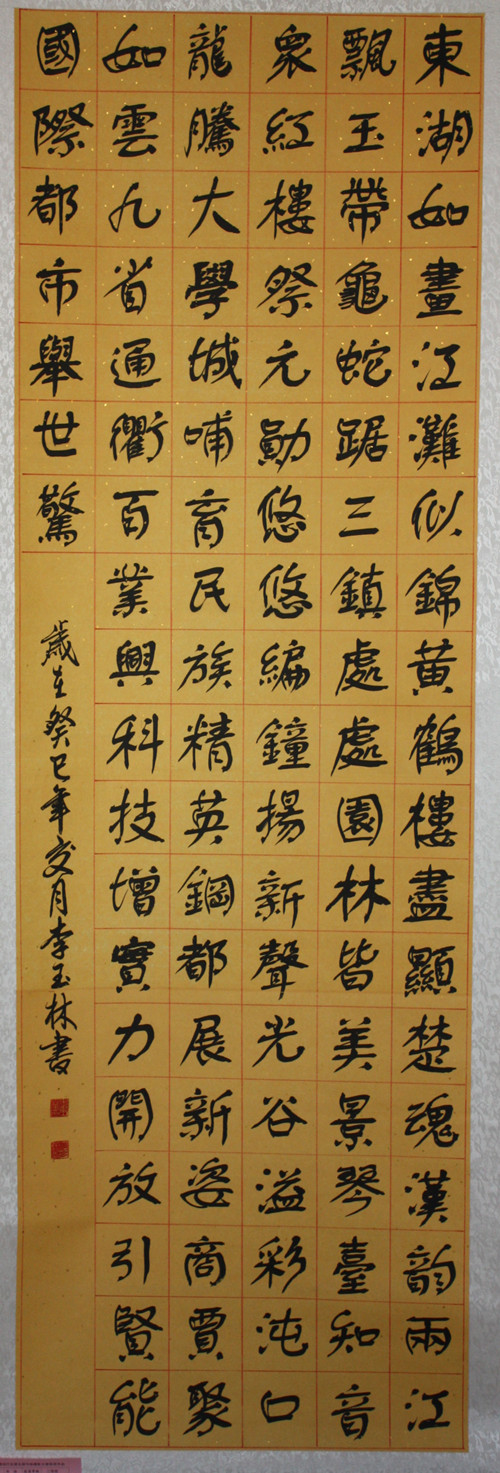 東湖如畫江灘似錦黃鶴樓盡顯楚魂漢韵兩江
飄玉帶龜蛇踞三鎮處處園林皆美景琴臺知音
衆紅樓祭元勛悠悠編鐘揚新聲光谷溢彩沌口
龍騰大學城哺育民族精英鋼都展新姿商賈聚
如雲九省通衢百業興科技增實力開放引賢能
國際都市舉世驚
歲在癸巳年女月李玉林書